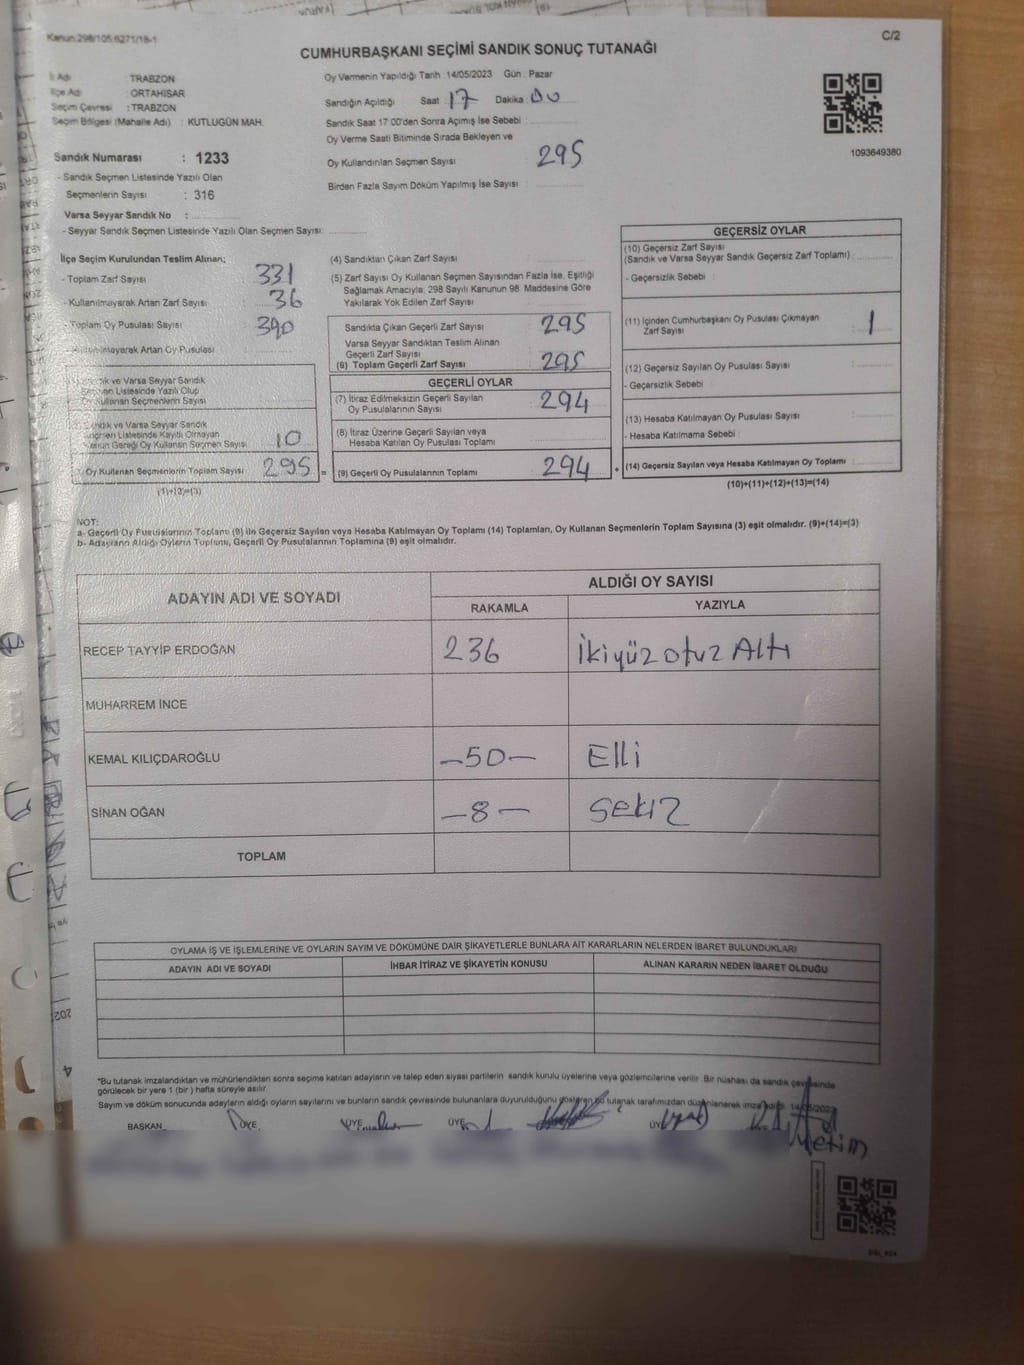 Kanun:298/105,6271/18-1
C/2
CUMHURBAŞKANI SEÇİMİ SANDIK SONUÇ TUTANAĞI
İl Adı : TRABZON
İlçe Adı : ORTAHİSAR
Seçim Çevresi : TRABZON
Seçim Bölgesi (Mahalle Adı) : KUTLUGÜN MAH.
Sandık Numarası : 1233
- Sandık Seçmen Listesinde Yazılı Olan
Seçmenlerin Sayısı : 316
Varsa Seyyar Sandık No :
- Seyyar Sandık Seçmen Listesinde Yazılı Olan Seçmen Sayısı:
Oy Vermenin Yapıldığı Tarih :14/05/2023 Gün : Pazar
Sandığın Açıldığı Saat 17 Dakika 00
Sandık Saat 17:00'den Sonra Açımış İse Sebebi :
Oy Verme Saati Bitiminde Sırada Bekleyen ve
Oy Kullandırılan Seçmen Sayısı 295
Birden Fazla Sayım Döküm Yapılmış İse Sayısı :
1093649380
İlçe Seçim Kurulundan Teslim Alınan;
- Toplam Zarf Sayısı 331
- Kullanılmayarak Artan Zarf Sayısı 36
- Toplam Oy Pusulası Sayısı 390
Artan Oy Pusulası
ve Varsa Seyyar Sandık
Listesinde Yazılı Olup
Kullanan Seçmenlerin Sayısı
ve Varsa Seyyar Sandık
Listesinde Kayıtlı Olmayan
Gereği Oy Kullanan Seçmen Sayısı 10
Oy Kullanan Seçmenlerin Toplam Sayısı 295
(1)+(2)=(3)
(4) Sandıktan Çıkan Zarf Sayısı
(5) Zarf Sayısı Oy Kullanan Seçmen Sayısından Fazla İse, Eşitliği
Sağlamak Amacıyla, 298 Sayılı Kanunun 98. Maddesine Göre
Yakılarak Yok Edilen Zarf Sayısı
Sandıkta Çıkan Geçerli Zarf Sayısı 295
Varsa Seyyar Sandıktan Teslim Alınan
Geçerli Zarf Sayısı
(6) Toplam Geçerli Zarf Sayısı 295
GEÇERLİ OYLAR
(7) İtiraz Edilmeksizin Geçerli Sayılan
Oy Pusulalarının Sayısı 294
(8) İtiraz Üzerine Geçerli Sayılan veya
Hesaba Katılan Oy Pusulası Toplamı
= (9) Geçerli Oy Pusulalarının Toplamı 294
GEÇERSİZ OYLAR
(10) Geçersiz Zarf Sayısı
(Sandık ve Varsa Seyyar Sandık Geçersiz Zarf Toplamı)
- Geçersizlik Sebebi :
(11) İçinden Cumhurbaşkanı Oy Pusulası Çıkmayan
Zarf Sayısı 1
(12) Geçersiz Sayılan Oy Pusulası Sayısı
- Geçersizlik Sebebi :
(13) Hesaba Katılmayan Oy Pusulası Sayısı
- Hesaba Katılmama Sebebi :
+ (14) Geçersiz Sayılan veya Hesaba Katılmayan Oy Toplamı
(10)+(11)+(12)+(13)=(14)
NOT:
a- Geçerli Oy Pusulalarının Toplamı (9) ile Geçersiz Sayılan veya Hesaba Katılmayan Oy Toplamı (14) Toplamları, Oy Kullanan Seçmenlerin Toplam Sayısına (3) eşit olmalıdır. (9)+(14)=(3)
b- Adayların Aldığı Oyların Toplamı, Geçerli Oy Pusulalarının Toplamına (9) eşit olmalıdır.
ADAYIN ADI VE SOYADI
ALDIĞI OY SAYISI
RAKAMLA YAZIYLA
RECEP TAYYİP ERDOĞAN 236 İkiyüz otuz Altı
MUHARREM İNCE
KEMAL KILIÇDAROĞLU -50- Elli
SİNAN OĞAN -8- Sekiz
TOPLAM
OYLAMA İŞ VE İŞLEMLERİNE VE OYLARIN SAYIM VE DÖKÜMÜNE DAİR ŞİKAYETLERLE BUNLARA AİT KARARLARIN NELERDEN İBARET BULUNDUKLARI
ADAYIN ADI VE SOYADI İHBAR İTİRAZ VE ŞİKAYETİN KONUSU ALINAN KARARIN NEDEN İBARET OLDUĞU
*Bu tutanak imzalandıktan ve mühürlendikten sonra seçime katılan adayların ve talep eden siyasi partilerin sandık kurulu üyelerine veya gözlemcilerine verilir. Bir nüshası da sandık çevresinde
görülecek bir yere 1 (bir) hafta süreyle asılır.
Sayım ve döküm sonucunda adayların aldığı oyların sayılarını ve bunların sandık çevresinde bulunanlara duyurulduğunu gösteren bu tutanak tarafımızdan düzenlenerek imzalandı. 14/05/2023
BAŞKAN ÜYE ÜYE ÜYE ÜYE